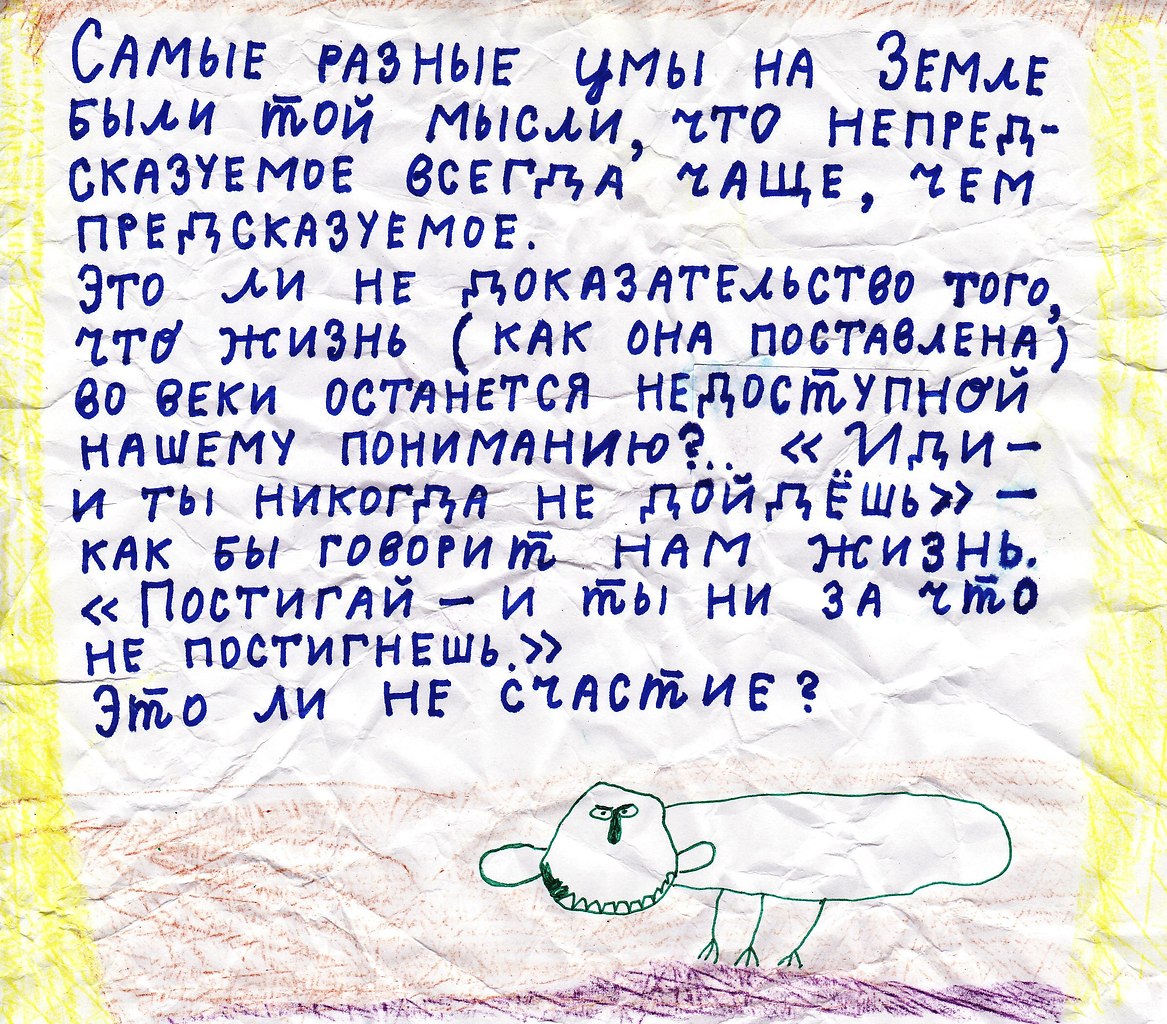 Самые разные умы на Земле
были той мысли, что непред-
сказуемое всегда чаще, чем
предсказуемое.
Это ли не доказательство того,
что жизнь (как она поставлена)
во веки останется недоступной
нашему пониманию?.. «Иди —
и ты никогда не дойдёшь» —
как бы говорит нам жизнь.
«Постигай — и ты ни за что
не постигнешь.»
Это ли не счастие?